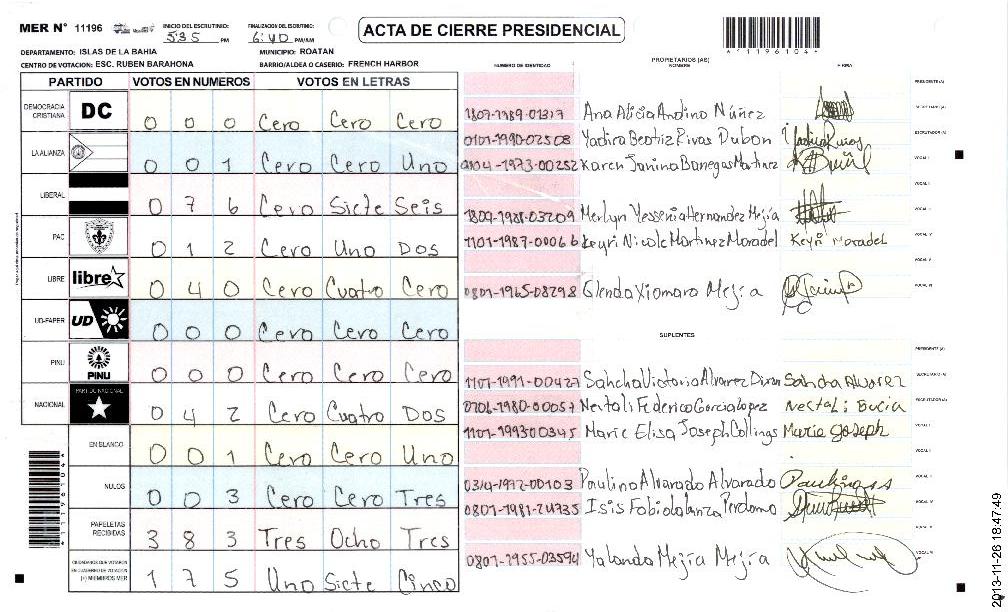 MER N° 11196
INICIO DEL ESCRUTINIO: 5:35 PM
FINALIZACION DEL ESCRUTINIO: 6:40 PM/AM
ACTA DE CIERRE PRESIDENCIAL
*11196104*
DEPARTAMENTO: ISLAS DE LA BAHIA
MUNICIPIO: ROATAN
CENTRO DE VOTACION: ESC. RUBEN BARAHONA
BARRIO/ALDEA O CASERIO: FRENCH HARBOR
PARTIDO VOTOS EN NUMEROS VOTOS EN LETRAS
DEMOCRACIA CRISTIANA DC 0 0 0 Cero Cero Cero
LA ALIANZA 0 0 1 Cero Cero Uno
LIBERAL 0 7 6 Cero Siete Seis
PAC 0 1 2 Cero Uno Dos
LIBRE libre 0 4 0 Cero Cuatro Cero
UD-FAPER UD 0 0 0 Cero Cero Cero
PINU PINU 0 0 0 Cero Cero Cero
NACIONAL PARTIDO NACIONAL 0 4 2 Cero Cuatro Dos
EN BLANCO 0 0 1 Cero Cero Uno
NULOS 0 0 3 Cero Cero Tres
PAPELETAS RECIBIDAS 3 8 3 Tres Ocho Tres
CIUDADANOS QUE VOTARON EN CUADERNO DE VOTACION (+) MIEMBROS MER 1 7 5 Uno Siete Cinco
*11196104*
PROPIETARIOS (AS)
NUMERO DE IDENTIDAD NOMBRE FIRMA
PRESIDENTE (A)
1807-1989-01317 Ana Alicia Andino Núñez SECRETARIO (A)
0101-1990-02508 Yadira Beatriz Rivas Dubon Yadira Rivas ESCRUTADOR (A)
1973-00252 Karen Janina Banegas Martinez VOCAL I
VOCAL II
1804-1988-03209 Merlyn Yessenia Hernandez Mejía
1101-1987-00066 Keyri Nicole Martinez Moradel Keyri Moradel VOCAL IV
VOCAL V
0801-1965-08298 Glenda Xiomara Mejía VOCAL VI
SUPLENTES
PRESIDENTE (A)
1101-1991-00427 Sahcha Victoria Alvarez Sahcha Alvarez SECRETARIO (A)
0206-1980-00057 Nectali Federico Garcia Lopez Nectali ESCRUTADOR (A)
1101-1993-00345 Marie Elisa Joseph Collings Marie Joseph VOCAL I
VOCAL II
0314-1972-00103 Paulino Alvarado Alvarado
0801-1981-24735 Isis Fabiola Lanza Perdomo VOCAL IV
VOCAL V
0801-1955-03594 Yolanda Mejía Mejía VOCAL VI
2013-11-26 18:47:49